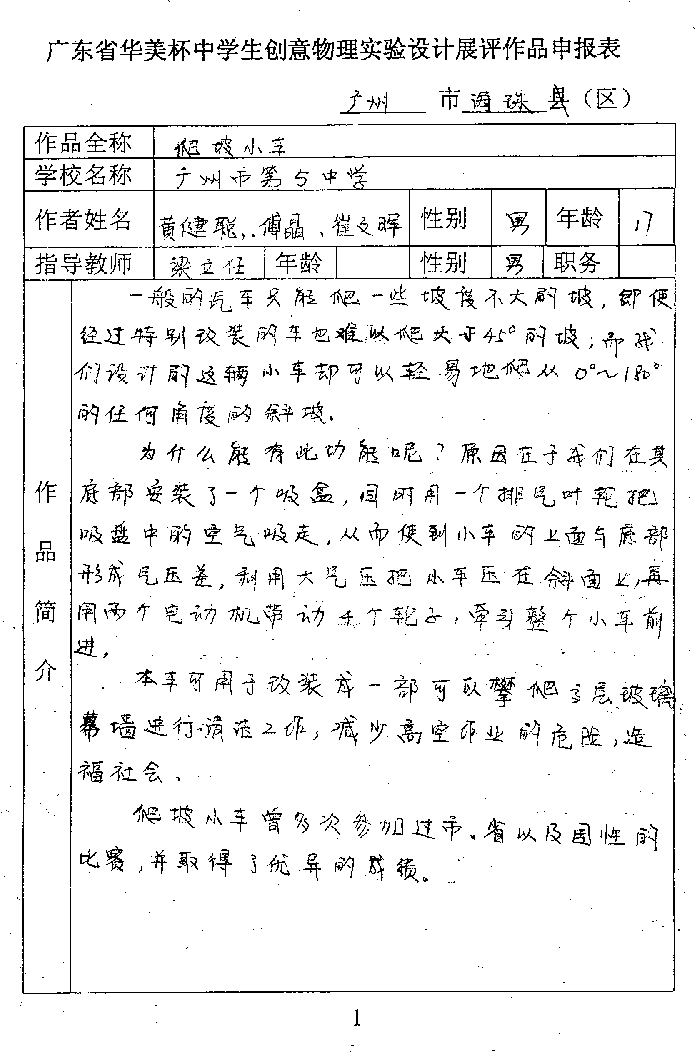 广东省华美杯中学生创意物理实验设计展评作品申报表
广州 市 海珠 县（区）
作品全称 爬坡小车
学校名称 广州市第5中学
作者姓名 黄健聪、傅晶、崔文晖 性别 男 年龄 17
指导教师 梁立任 年龄 性别 男 职务
作品简介
一般的汽车只能爬一些坡度不大的坡，即便
经过特别改装的车也难以爬大于45°的坡；而我
们设计的这辆小车却可以轻易地爬从0°～180°
的任何角度的斜坡.
为什么能有此功能呢？原因在于我们在其
底部安装了一个吸盒，同时用一个排气叶轮把
吸盘中的空气吸走，从而使到小车的上面与底部
形成气压差，利用大气压把小车压在斜面上，再
用两个电动机带动4个轮子，牵引整个小车前
进。
本车可用于改装成一部可以攀爬高层玻璃
幕墙进行清洁工作，减少高空作业的危险，造
福社会、
爬坡小车曾多次参加过市、省以及国性的
比赛，并取得了优异的成绩。
1